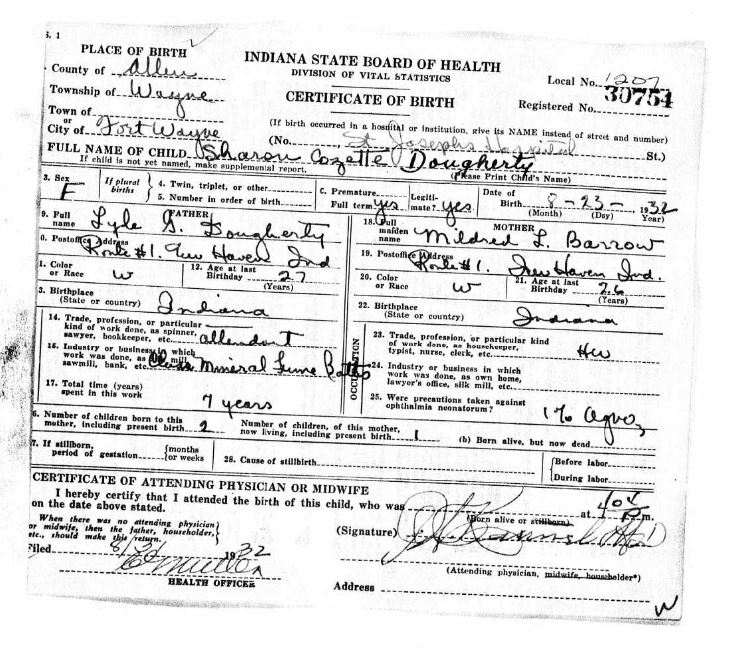 S. 1
PLACE OF BIRTH
County of Allen
Township of Wayne
Town of
or
City of Fort Wayne
INDIANA STATE BOARD OF HEALTH
DIVISION OF VITAL STATISTICS
CERTIFICATE OF BIRTH
Local No. 1207
Registered No. 30754
(If birth occurred in a hospital or institution, give its NAME instead of street and number)
(No. St Josephs Hospital St.)
FULL NAME OF CHILD Sharon Cozette Dougherty
If child is not yet named, make supplemental report. (Please Print Child's Name)
3. Sex F
If plural births
4. Twin, triplet, or other
5. Number in order of birth
6. Premature
Full term yes
Legitimate? yes
Date of Birth 8-23-1932
(Month) (Day) Year)
FATHER
9. Full name Lyle G. Dougherty
0. Postoffice Address Route #1. New Haven Ind
1. Color or Race W
12. Age at last Birthday 27
(Years)
3. Birthplace (State or country) Indiana
14. Trade, profession, or particular kind of work done, as spinner, sawyer, bookkeeper, etc. attendant
15. Industry or business in which work was done, as silk mill, sawmill, bank, etc. Mineral Fume Baths
17. Total time (years) spent in this work 7 years
MOTHER
18. Full maiden name Mildred L. Barrow
19. Postoffice Address Route #1. New Haven Ind.
20. Color or Race W
21. Age at last Birthday 26
(Years)
22. Birthplace (State or country) Indiana
OCCUPATION
23. Trade, profession, or particular kind of work done, as housekeeper, typist, nurse, clerk, etc. HW
24. Industry or business in which work was done, as own home, lawyer's office, silk mill, etc.
25. Were precautions taken against ophthalmia neonatorum? 1%
6. Number of children born to this mother, including present birth 2
Number of children, of this mother, now living, including present birth 1
(b) Born alive, but now dead
7. If stillborn, period of gestation {months or weeks
28. Cause of stillbirth
{Before labor
During labor
CERTIFICATE OF ATTENDING PHYSICIAN OR MIDWIFE
I hereby certify that I attended the birth of this child, who was at 404 P.m.
on the date above stated. (Born alive or stillborn)
When there was no attending physician or midwife, then the father, householder, etc., should make this return.
(Signature)
(Attending physician, midwife, householder*)
Filed 1932
HEALTH OFFICER
Address